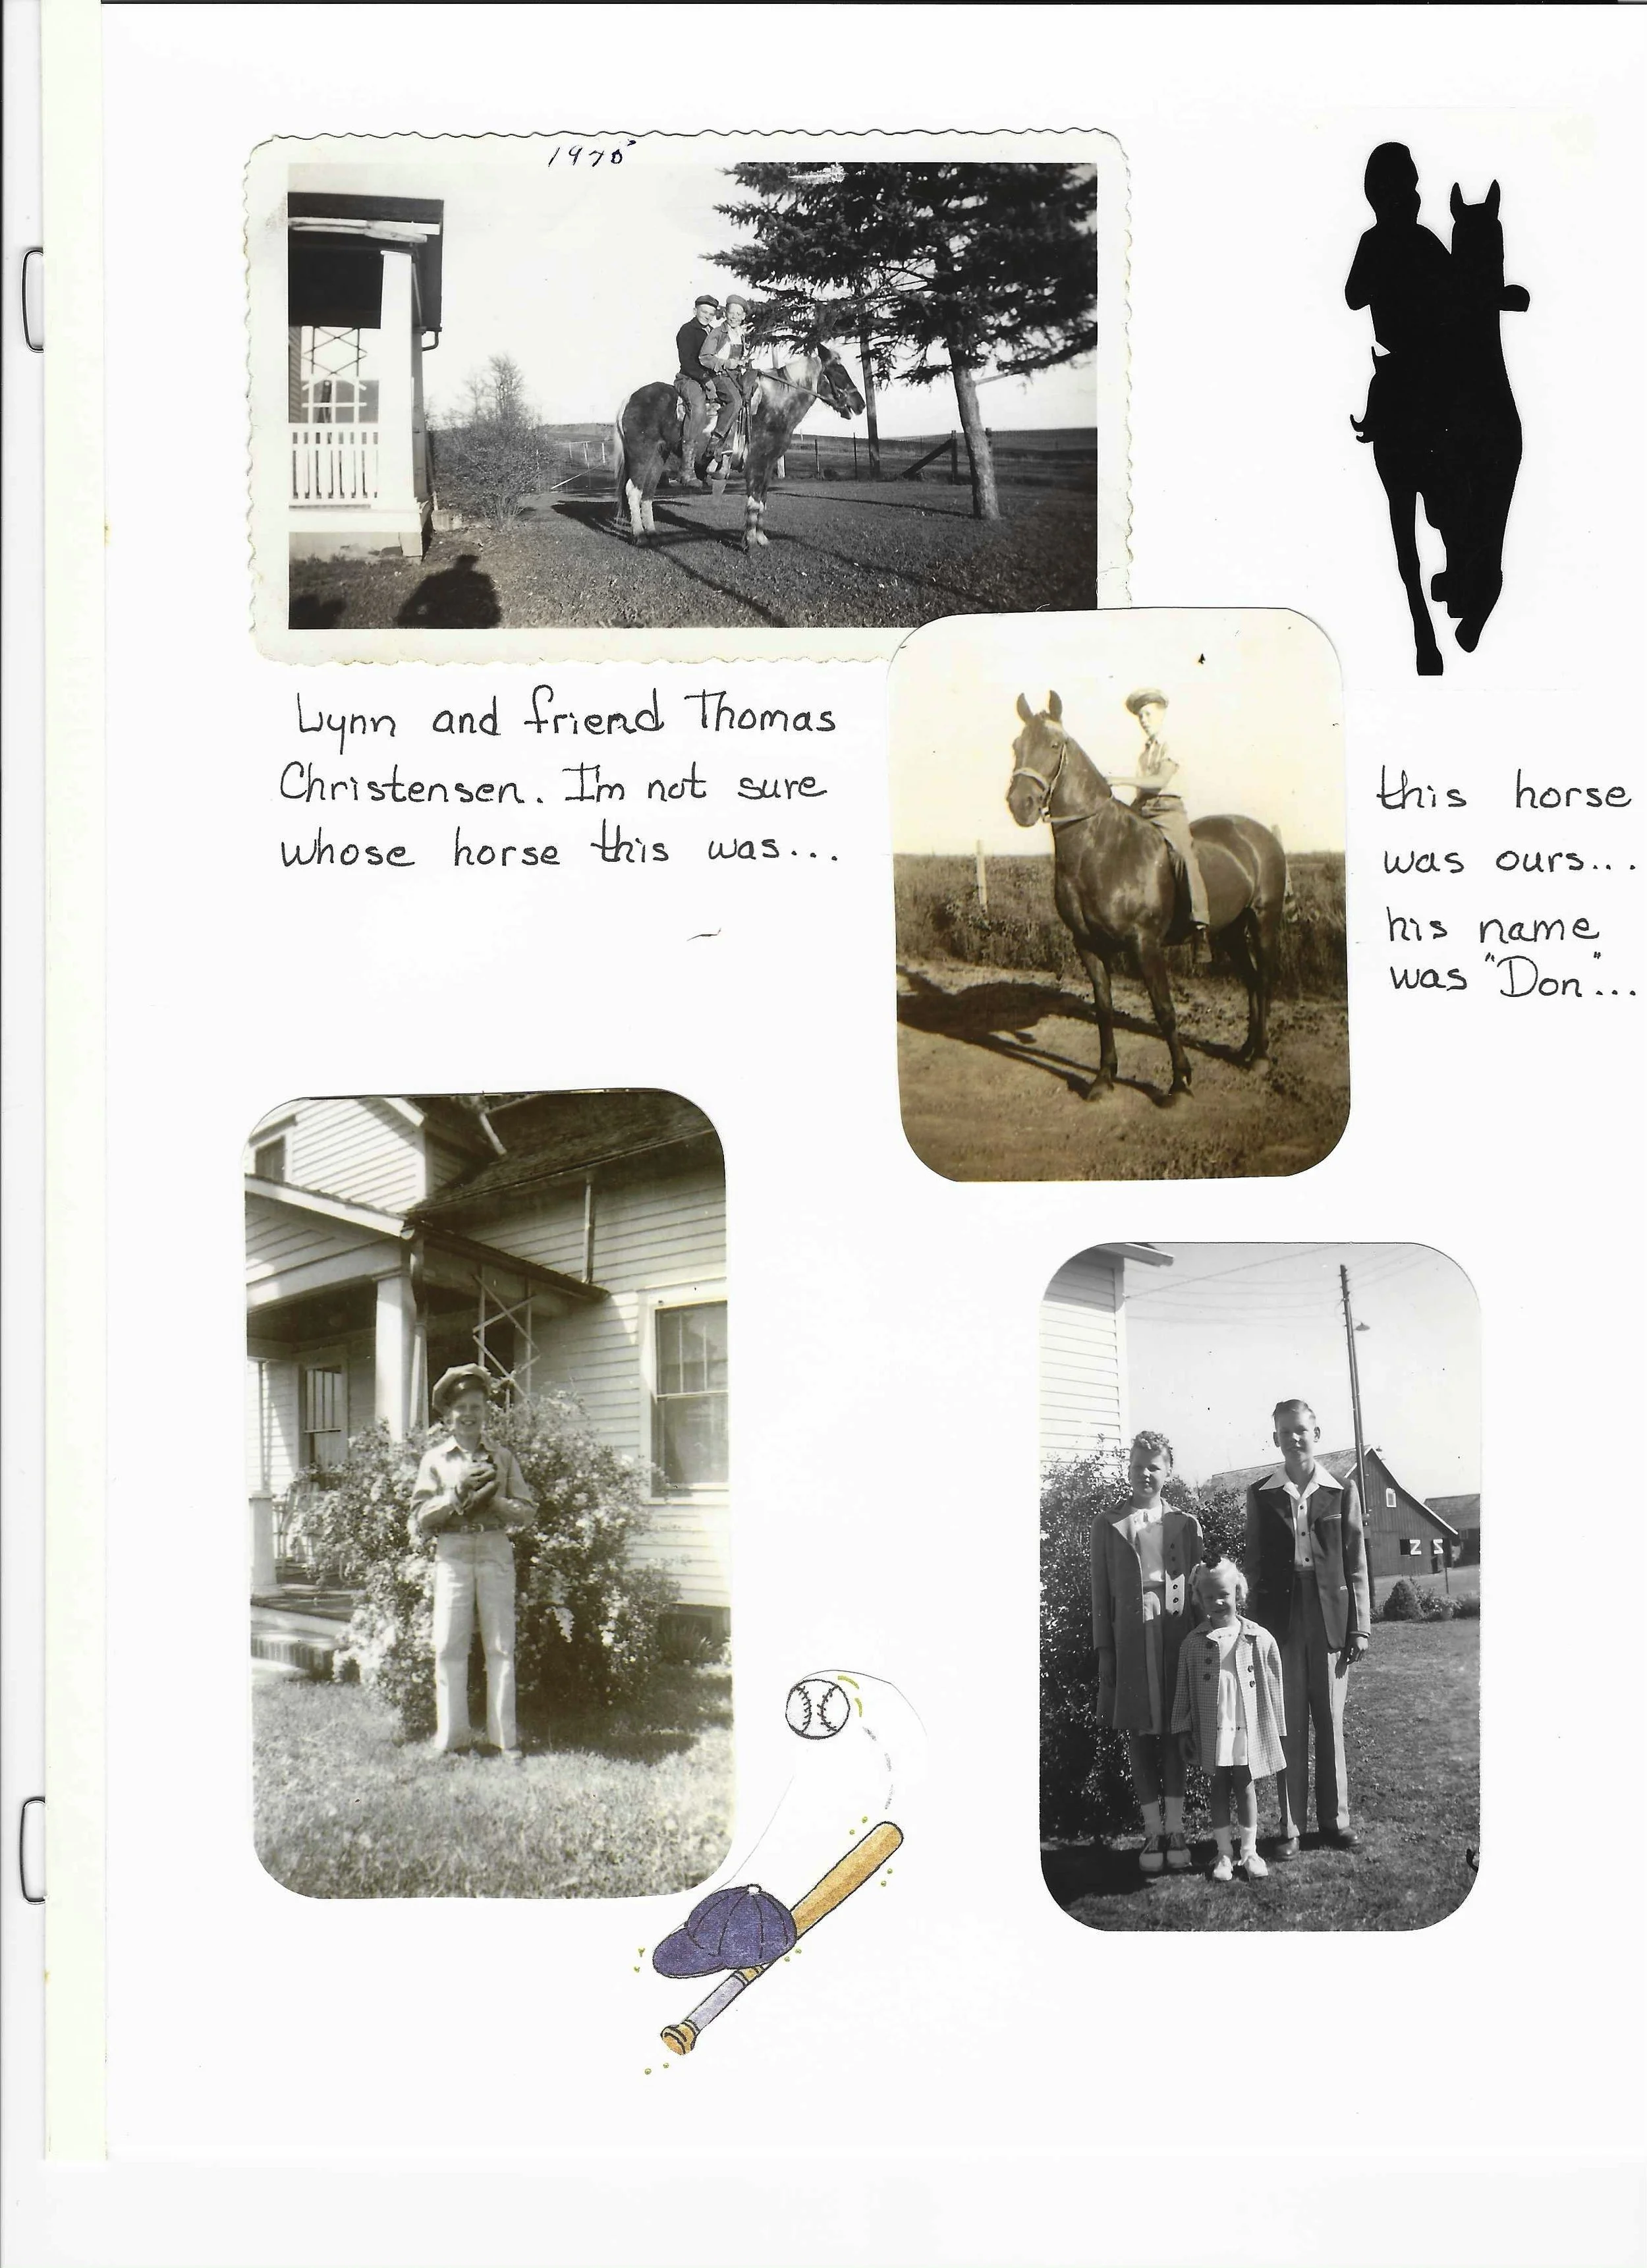 Lynn and friend Thomas
Christensen. I'm not sure
whose horse this was...
this horse
was ours...
his name
was "Don"...